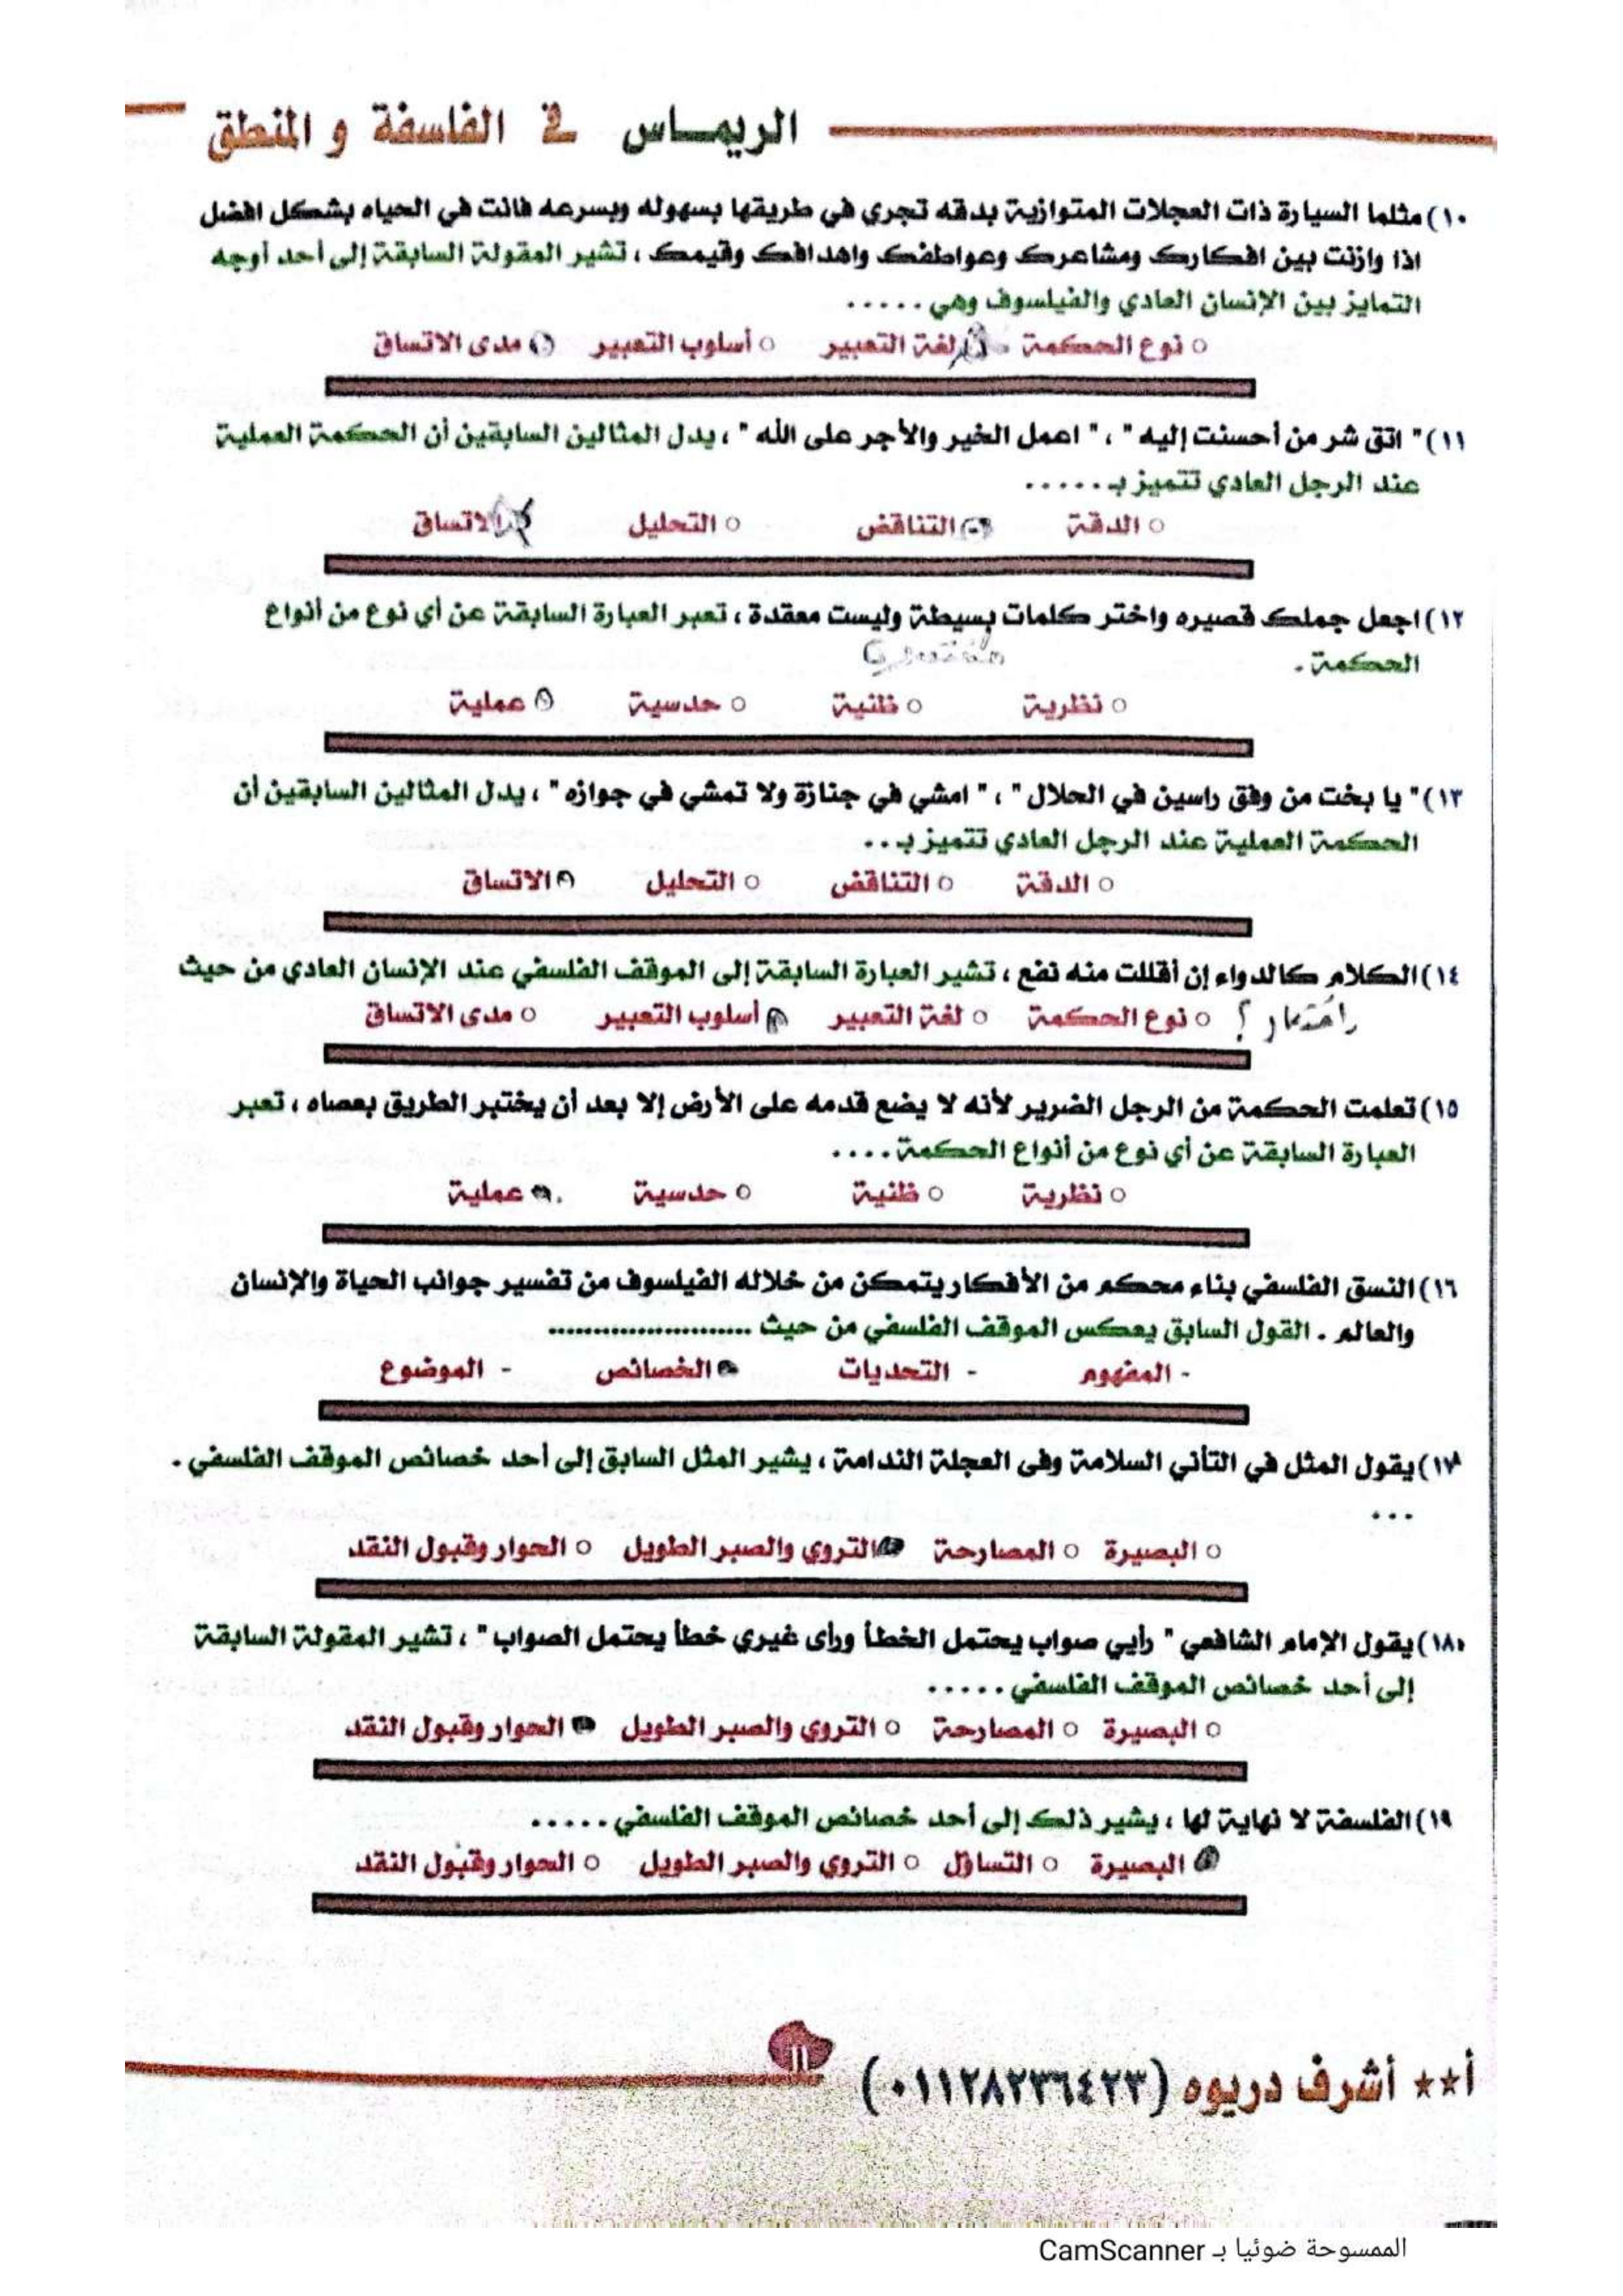 الريمــاس في الفلسفة و المنطق
١٠) مثلما السيارة ذات العجلات المتوازية بدقه تجري في طريقها بسهوله وبسرعه فانت في الحياه بشكل افضل
اذا وازنت بين افكارك ومشاعرك وعواطفك واهدافك وقيمك ، تشير المقولة السابقة إلى أحد أوجه
التمايز بين الإنسان العادي والفيلسوف وهي .....
○ نوع الحكمة ○ لغة التعبير ○ أسلوب التعبير ○ مدى الاتساق
١١) " اتق شر من أحسنت إليه " ، " اعمل الخير والأجر على الله " ، يدل المثالين السابقين أن الحكمة العملية
عند الرجل العادي تتميز بـ.....
○ الدقة ○ التناقض ○ التحليل ○ الاتساق
١٢) اجعل جملك قصيره واختر كلمات بسيطة وليست معقدة ، تعبر العبارة السابقة عن أي نوع من أنواع
الحكمة .
○ نظرية ○ ظنية ○ حدسية ○ عملية
١٣) " يا بخت من وفق راسين في الحلال " ، " امشي في جنازة ولا تمشي في جوازه " ، يدل المثالين السابقين أن
الحكمة العملية عند الرجل العادي تتميز بـ..
○ الدقة ○ التناقض ○ التحليل ○ الاتساق
١٤) الكلام كالدواء إن أقللت منه نفع ، تشير العبارة السابقة إلى الموقف الفلسفي عند الإنسان العادي من حيث
○ نوع الحكمة ○ لغة التعبير ○ أسلوب التعبير ○ مدى الاتساق
١٥) تعلمت الحكمة من الرجل الضرير لأنه لا يضع قدمه على الأرض إلا بعد أن يختبر الطريق بعصاه ، تعبر
العبارة السابقة عن أي نوع من أنواع الحكمة ....
○ نظرية ○ ظنية ○ حدسية ○ عملية
١٦) النسق الفلسفي بناء محكم من الأفكار يتمكن من خلاله الفيلسوف من تفسير جوانب الحياة والإنسان
والعالم . القول السابق يعكس الموقف الفلسفي من حيث .......................
- المفهوم - التحديات - الخصائص - الموضوع
١٧) يقول المثل في التأني السلامة وفى العجلة الندامة ، يشير المثل السابق إلى أحد خصائص الموقف الفلسفي .
...
○ البصيرة ○ المصارحة ○ التروي والصبر الطويل ○ الحوار وقبول النقد
١٨) يقول الإمام الشافعي " رأيي صواب يحتمل الخطأ ورأى غيري خطأ يحتمل الصواب " ، تشير المقولة السابقة
إلى أحد خصائص الموقف الفلسفي .....
○ البصيرة ○ المصارحة ○ التروي والصبر الطويل ○ الحوار وقبول النقد
١٩) الفلسفة لا نهاية لها ، يشير ذلك إلى أحد خصائص الموقف الفلسفي .....
○ البصيرة ○ التساؤل ○ التروي والصبر الطويل ○ الحوار وقبول النقد
أ** أشرف دربوه (٠١١٢٨٢٣٦٤٢٣)
١١
الممسوحة ضوئيا بـ CamScanner